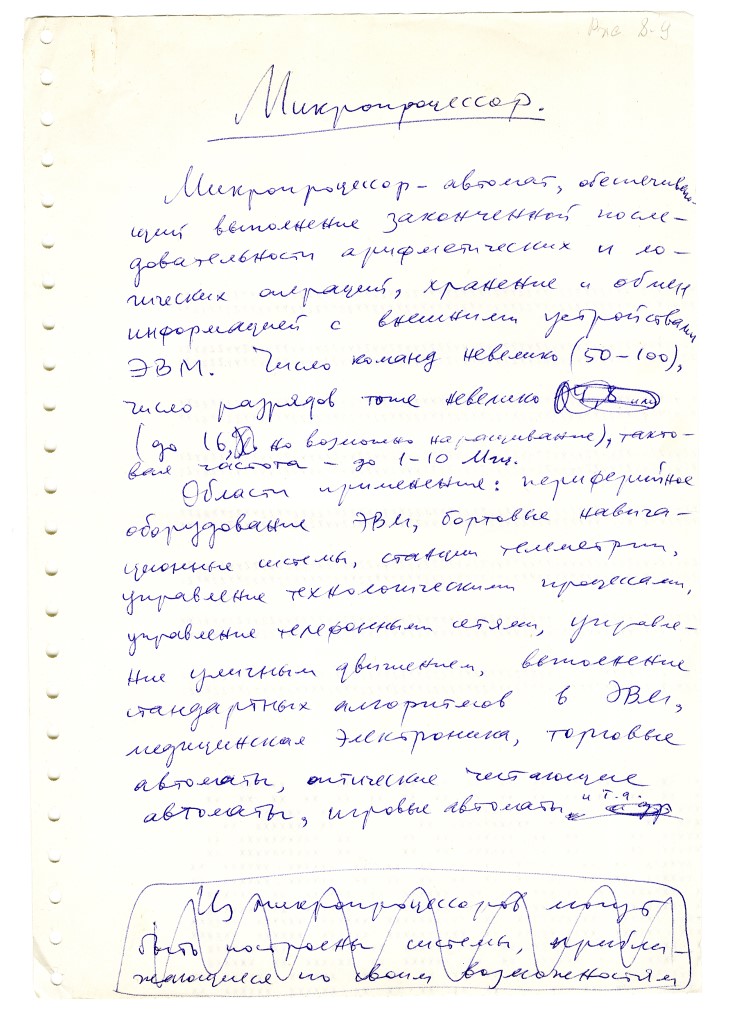 Рис 8-9
Микропроцессор.
Микропроцессор – автомат, обеспечиваю-
щий выполнение законченной после-
довательности арифметических и ло-
гических операций, хранение и обмен
информацией с внешними устройствами
ЭВМ. Число команд невелико (50–100),
число разрядов тоже невелико (4, 8 или
(до 16, но возможно наращивание), такто-
вая частота – до 1–10 Мгц.
Области применения: периферийное
оборудование ЭВМ, бортовые навига-
ционные системы, станции телеметрии,
управление технологическими процессами,
управление телефонными сетями, управле-
ние уличным движением, выполнение
стандартных алгоритмов в ЭВМ,
медицинская электроника, торговые
автоматы, оптические читающие
автоматы, игровые автоматы и т.д.
Из микропроцессоров могут
быть построены системы, прибли-
жающиеся по своим возможностям